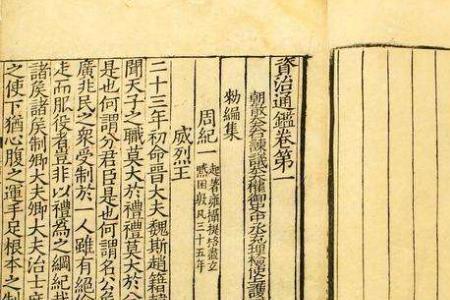 資治通鑑卷第一
朝散大夫右諫議大夫權御史中丞充理檢使上護
勑編集
周紀一
起著雍攝提格盡玄
黓困敦凡三十五年
威烈王
二十三年初命晉大夫魏斯趙籍韓
聞天子之職莫大於禮禮莫大於分
是也何謂分君臣是也何謂名公侯
廣兆民之衆受制於一人雖有絕倫
走而服役者豈非以禮爲之綱紀哉
諸矦諸矦制卿大夫卿大夫治士庶
之使下猶心腹之運手足根本之制